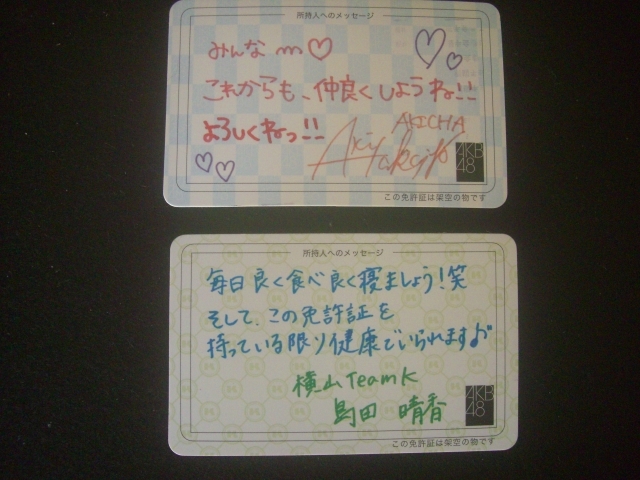 所持人へのメッセージ
みんな m♡
これからも、仲良くしようね!!
よろしくねっ!!
AKICHA
AKB
48
この免許証は架空の物です
所持人へのメッセージ
毎日良く食べ良く寝ましょう！笑
そして、この免許証を
持っている限り健康でいられます♪
横山TeamK
島田 晴香
AKB
48
この免許証は架空の物です